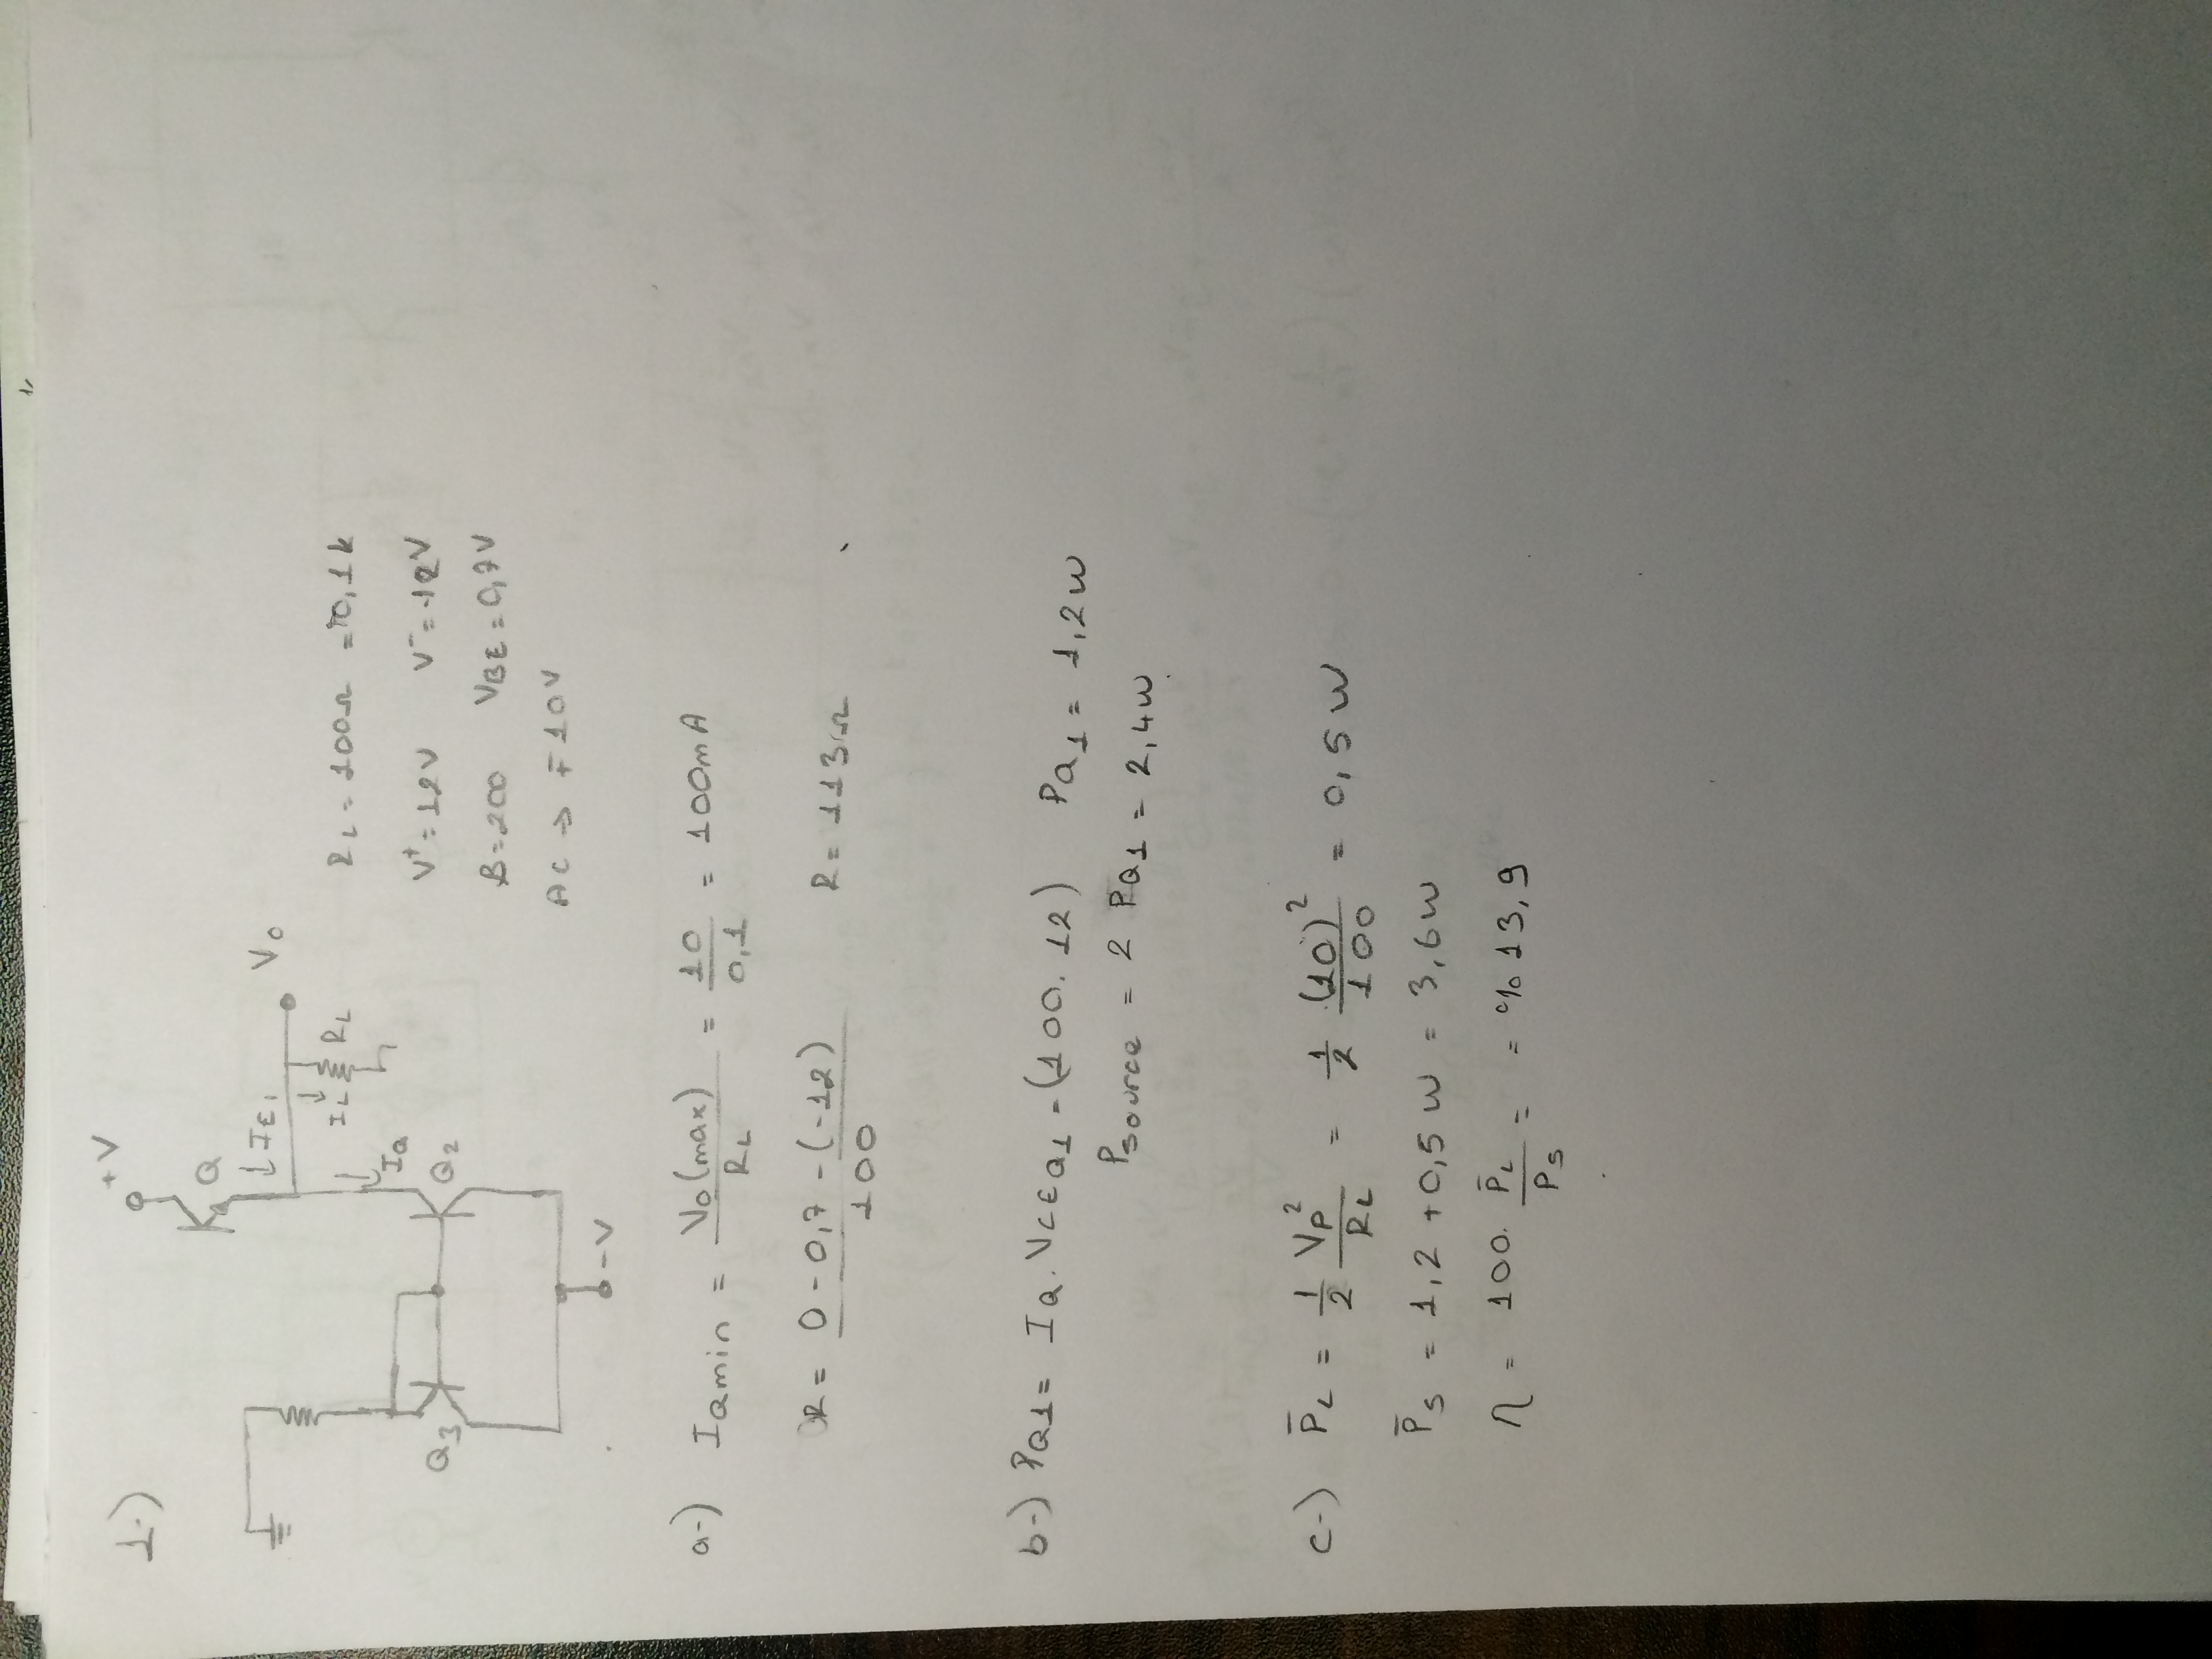 1-)
+V
Q
IE1
Vo
IL
RL
RL = 100Ω = 0,1k
IQ
V+ = 12V V- = -12V
Q3
Q2
β = 200 VBE = 0,7V
AC → ∓10V
-V
a-) IQmin = Vo(max) / RL = 10 / 0,1 = 100mA
R = 0 - 0,7 - (-12) / 100 R = 113Ω
b-) PQ1 = IQ . VCEQ1 = (100 . 12) PQ1 = 1,2w
Psource = 2 PQ1 = 2,4w
c-) P̄L = 1/2 Vp² / RL = 1/2 (10)² / 100 = 0,5 W
P̄s = 1,2 + 0,5 w = 3,6w
η = 100. P̄L / Ps = = %13,9